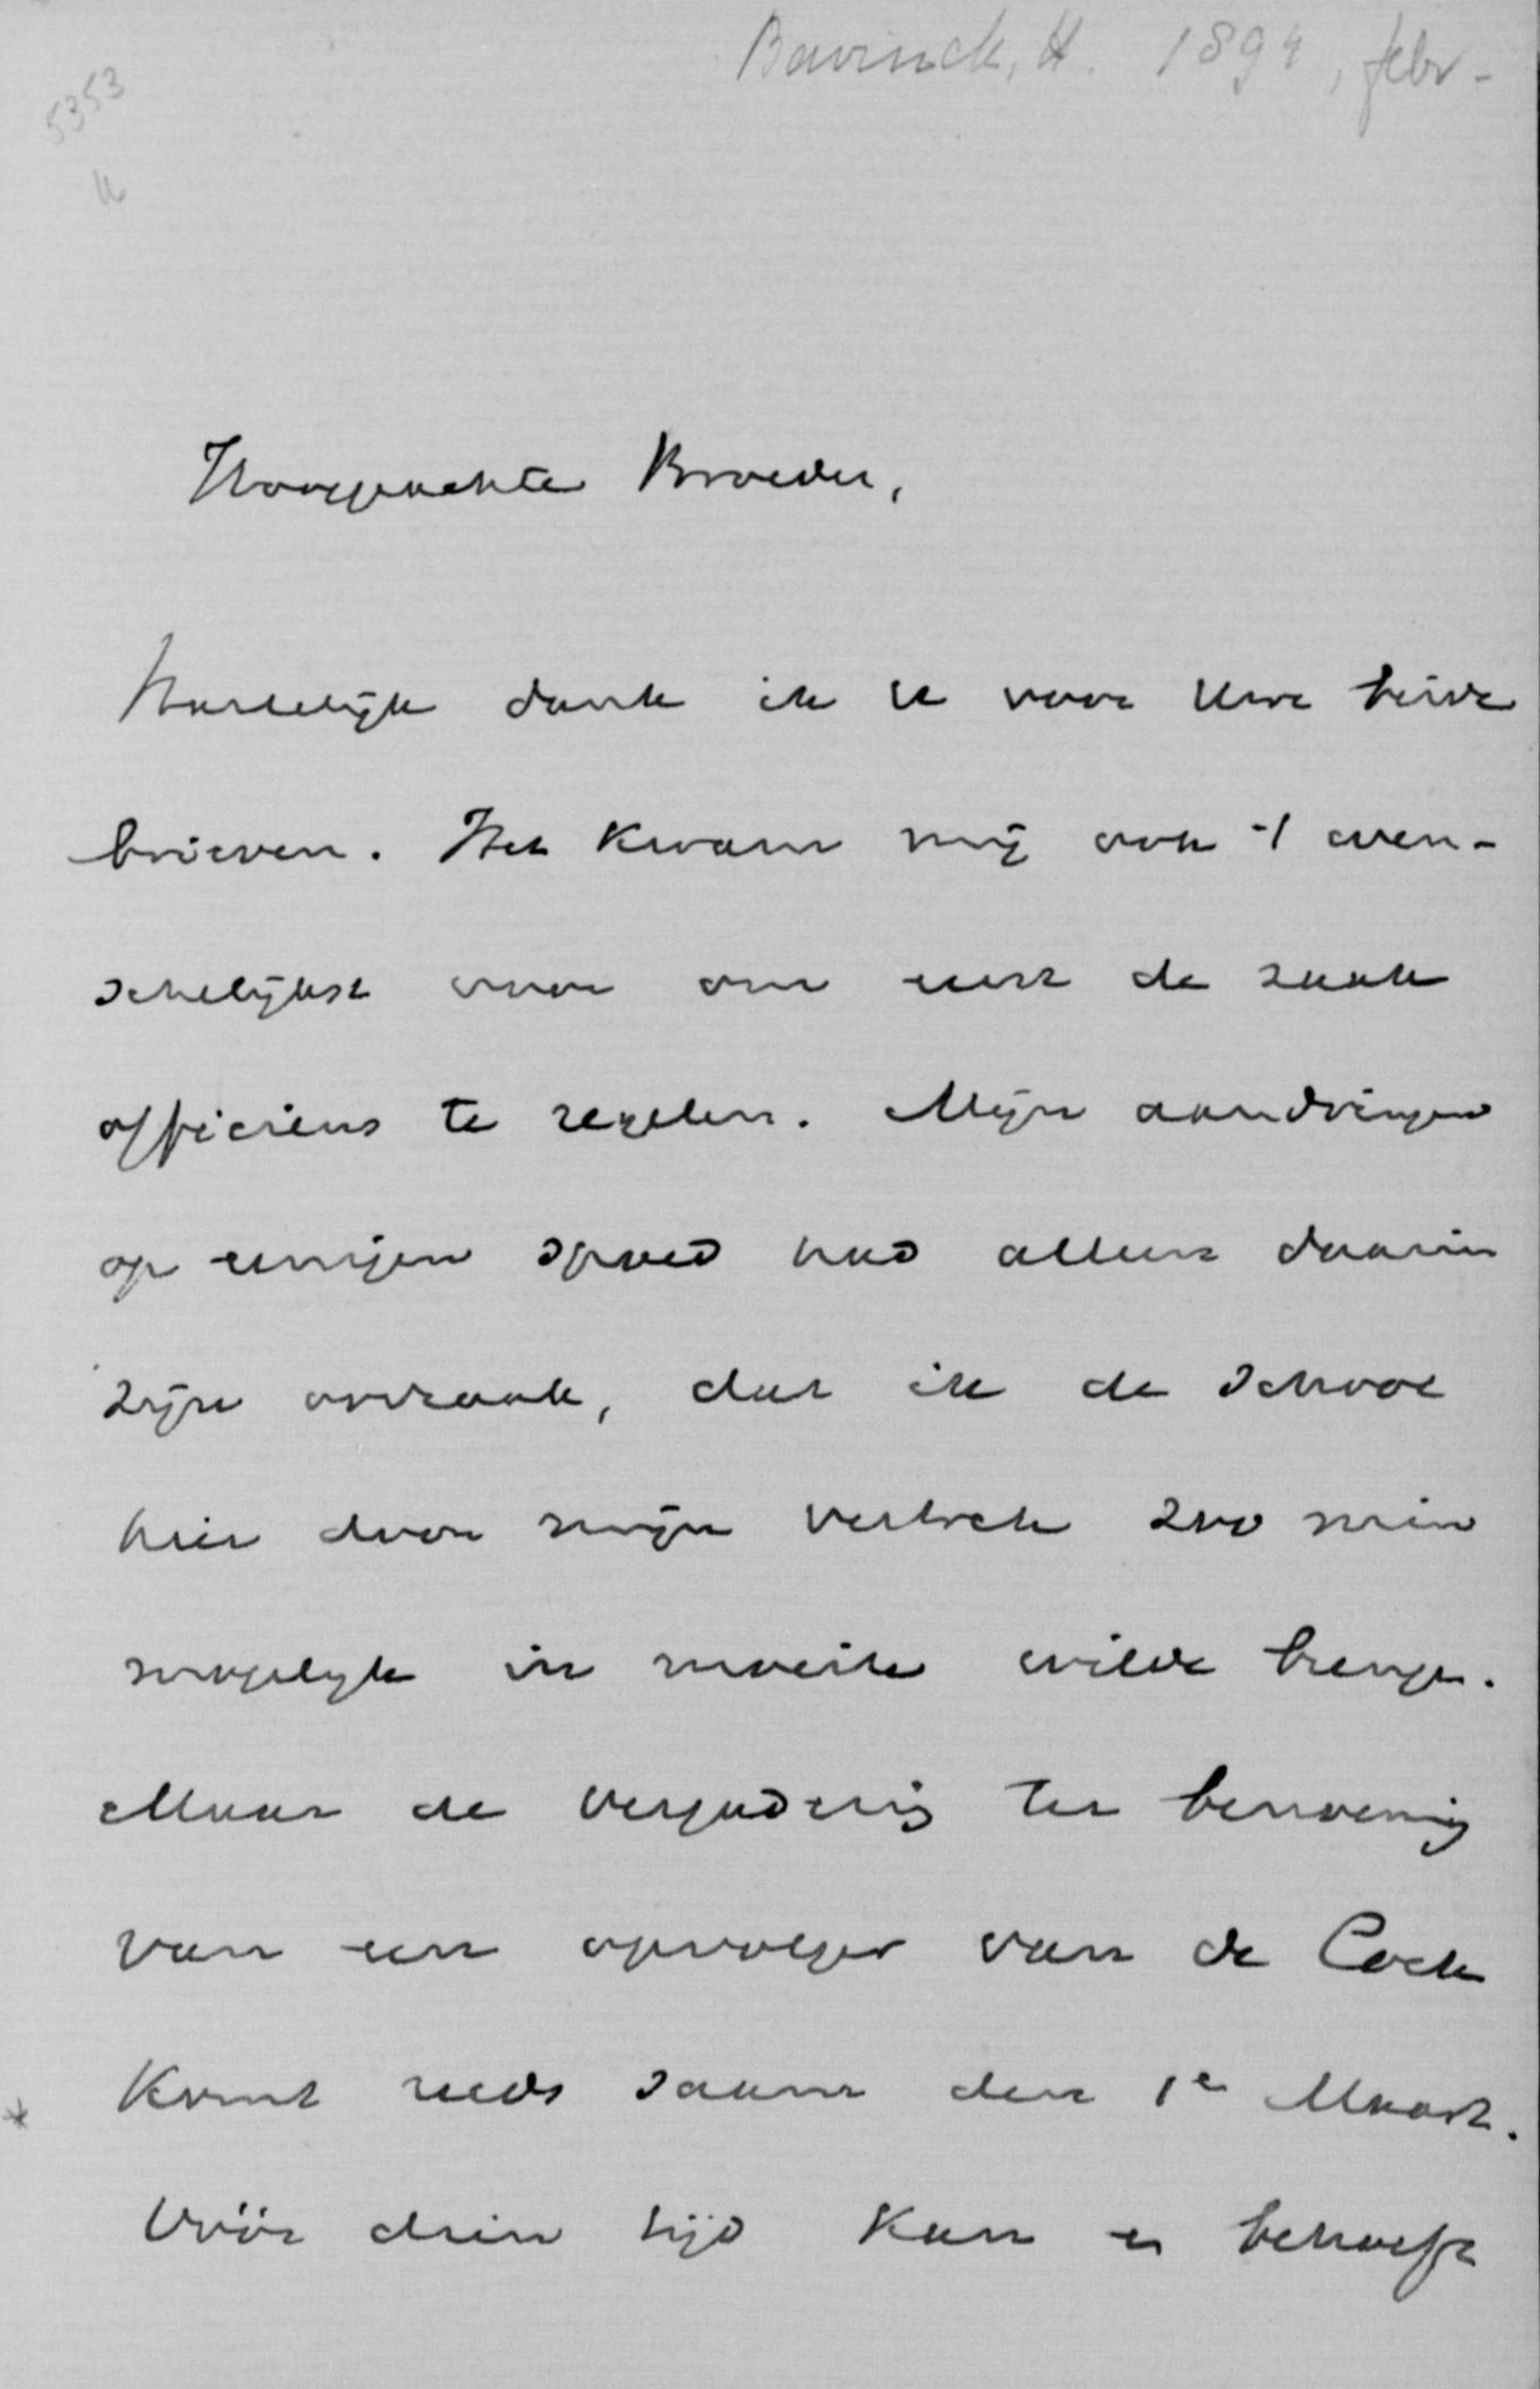 Bavinck, H. 1894, febr-
5353
Hooggeachte Broeder,
Hartelijk dank ik U voor Uwe beide
brieven. Het kwam mij ook 't wen-
schelijkst voor om eerst de zaak
officieus te regelen. Mijn aandringen
op eenigen spoed had alleen daarin
zijn oorzaak, dat ik de School
hier door mijn vertrek zoo min
mogelijk in moeite wilde brengen.
Maar de vergadering ter benoeming
van een opvolger van de Cock
komt reeds saam den 1e Maart.
Vóór dien tijd kan er behoefte